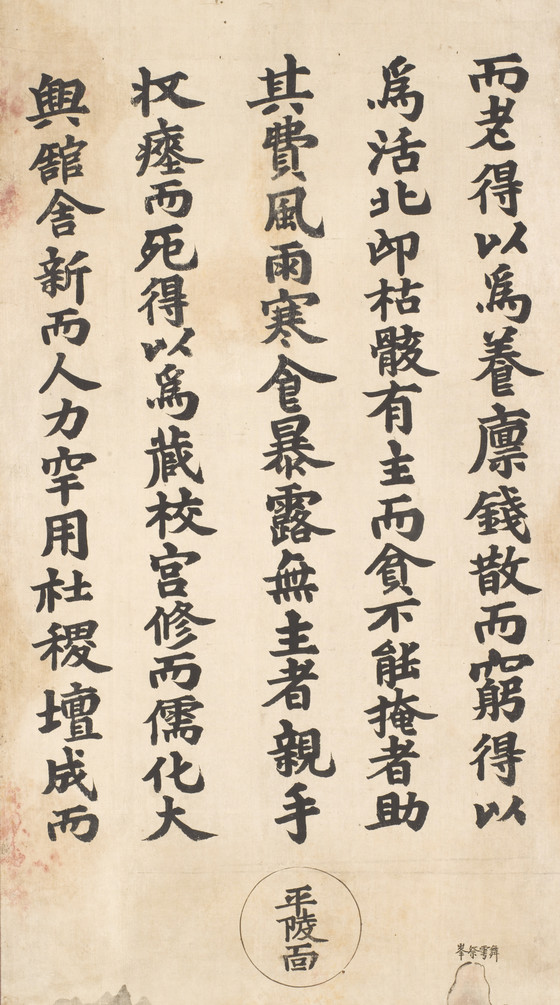 而老得以爲養廪錢散而窮得以
爲活北邙枯骸有主而貧不能掩者助
其費風雨寒食暴露無主者親手
収瘞而死得以爲藏校宮修而儒化大
興舘舍新而人力罕用社稷壇成而
平陵面
舞雩祭峯